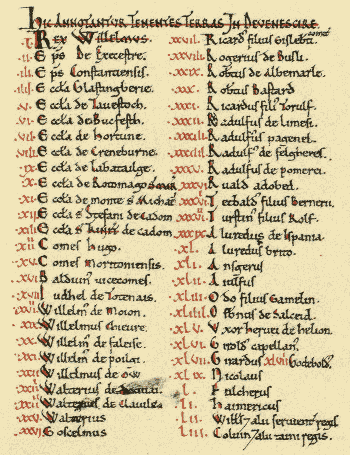 HIC ANNOTANTUR TENENTES TERRAS IN DEVENESCIRE.
.I. Rex Willelmus.
.II. Eps De Execestre.
.III. Eps Constantiensis.
Eccla Glastingberie.
.V. Eccla de Tavestoch.
.VI. Eccla de Bucfesth.
.VII. Eccla de hortune.
.VIII. Eccla de Creneburne.
.IX. Eccla de Labatailge.
.X. Eccla de Rotomago
.XI. Eccla de monte S Michael
.XII. Eccla S Stefani de Cadom
.XIII. Eccla de cadom
.XIIII. Comes hugo.
.XV. Comes moritoniensis.
.XVI. Balduin vicecomes.
.XVII. Judhel de Totenais.
Willelm de moion.
Willelmus chievre.
Willelm de faleise.
Willelm de poilgi.
Willelmus de ow
Walterius de
Walterius de Clavile
Walterius
.XXVI. Goscelmus
.XXVII. Ricard filius Gislebti comit
.XXVIII. Rogerius de Busli.
.XXIX. Rotbtus de Albemarle.
.XXX. Robtus Bastard
.XXXI. Ricardus fili Torulf.
.XXXII. Radulfus de limesi.
.XXXIII. Radulfus pagenel.
Radulf de felgheres.
Radulfus de pomerei.
Ruald adobed.
Tetbald filius Bernerii.
Turstin filius Rolf.
Aluredus de Ispania.
.XL. Aluredus brito.
.XLI. Ansgerus
Aiulfus
Odo filius Gamelin.
Osbnus de Salceid.
.XLV. Uxor hervei de helion.
Girold capellan.
Girardus XLVIII Godebold.
Nicolaus
.L. Fulcherius
.LI. haimericus
.LII. Will alii servientes regis
.LIII. Colvin alii taini regis.